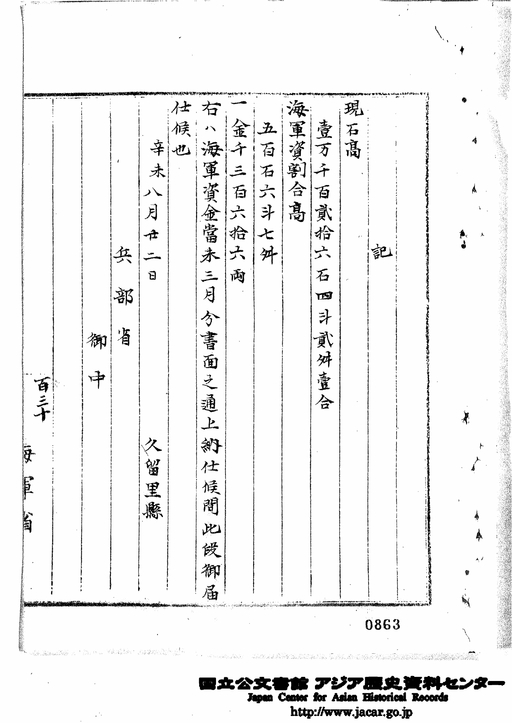 記
現石高
壹万千百貳拾六石四斗貳舛壹合
海軍資割合高
五百石六斗七舛
一金千三百六拾六両
右ハ海軍資金當未三月分書面之通上納仕候間此段御届
仕候也
辛未八月廿二日
久留里縣
兵部省
御中
百三十
海軍省
0863
国立公文書館 アジア歴史資料センター
Japan Center for Asian Historical Records
http://www.jacar.go.jp